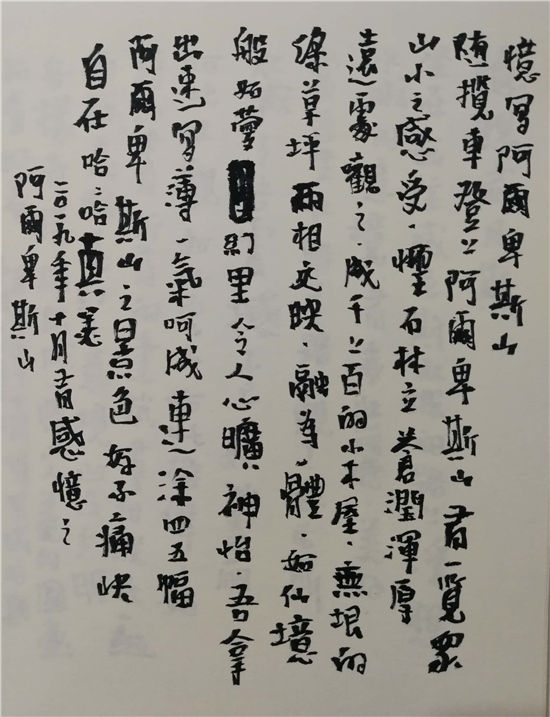 憶寫阿爾卑斯山
随攬車登上阿爾卑斯山有一覽眾
山小之感受、石林立蒼潤渾厚
遠處觀之、成千上百的小木屋、無垠的
綠草坪兩相交映、融為一體、如仙境
般如夢幻里令人心曠神怡、吾拿
出速寫薄一氣呵成連塗四五幅
阿爾卑斯山之景色好不痛快
自在哈哈真
二〇一九年十月感憶之
阿爾卑斯山